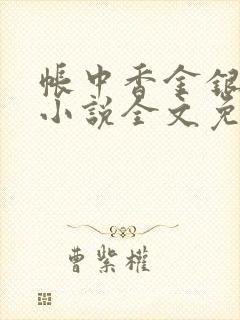 帳中香金銀
小說全文免
曹紫權